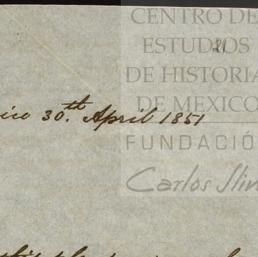 CENTRO DE
ESTUDIOS
21
DE HISTORIA
DE MEXICO
ico 30.th April 1851
FUNDACIÓ
Carlos Slim